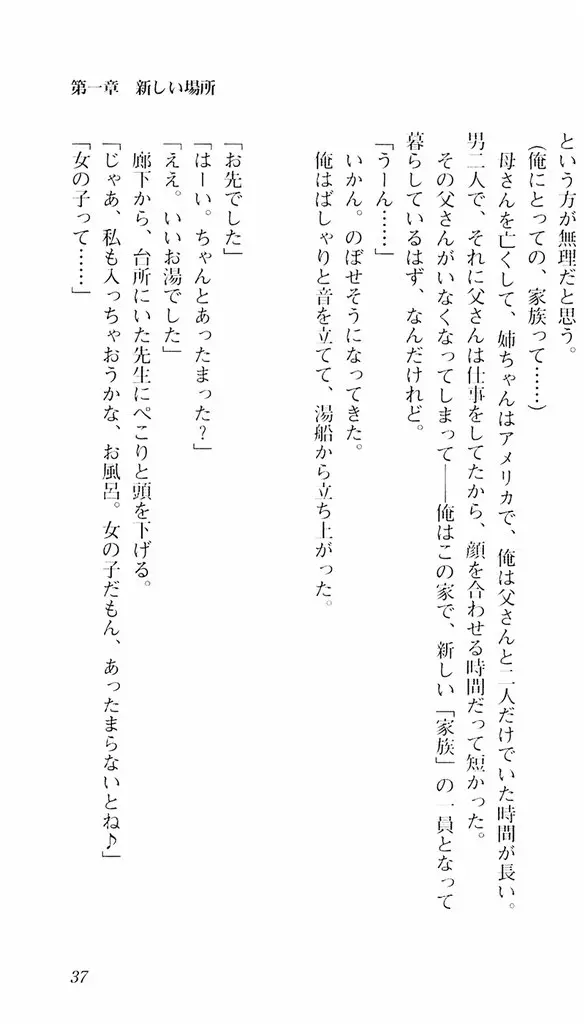 第一章　新しい場所
という方が無理だと思う。
（俺にとっての、家族って……）
母さんを亡くして、姉ちゃんはアメリカで、俺は父さんと二人だけでいた時間が長い。
男二人で、それに父さんは仕事をしてたから、顔を合わせる時間だって短かった。
その父さんがいなくなってしまって――俺はこの家で、新しい「家族」の一員となって
暮らしているはず、なんだけれど。
「うーん……」
いかん。のぼせそうになってきた。
俺はばしゃりと音を立てて、湯船から立ち上がった。
「お先でした」
「はーい。ちゃんとあったまった？」
「ええ。いいお湯でした」
廊下から、台所にいた先生にぺこりと頭を下げる。
「じゃあ、私も入っちゃおうかな、お風呂。女の子だもん、あったまらないとね♪」
「女の子って……」
37